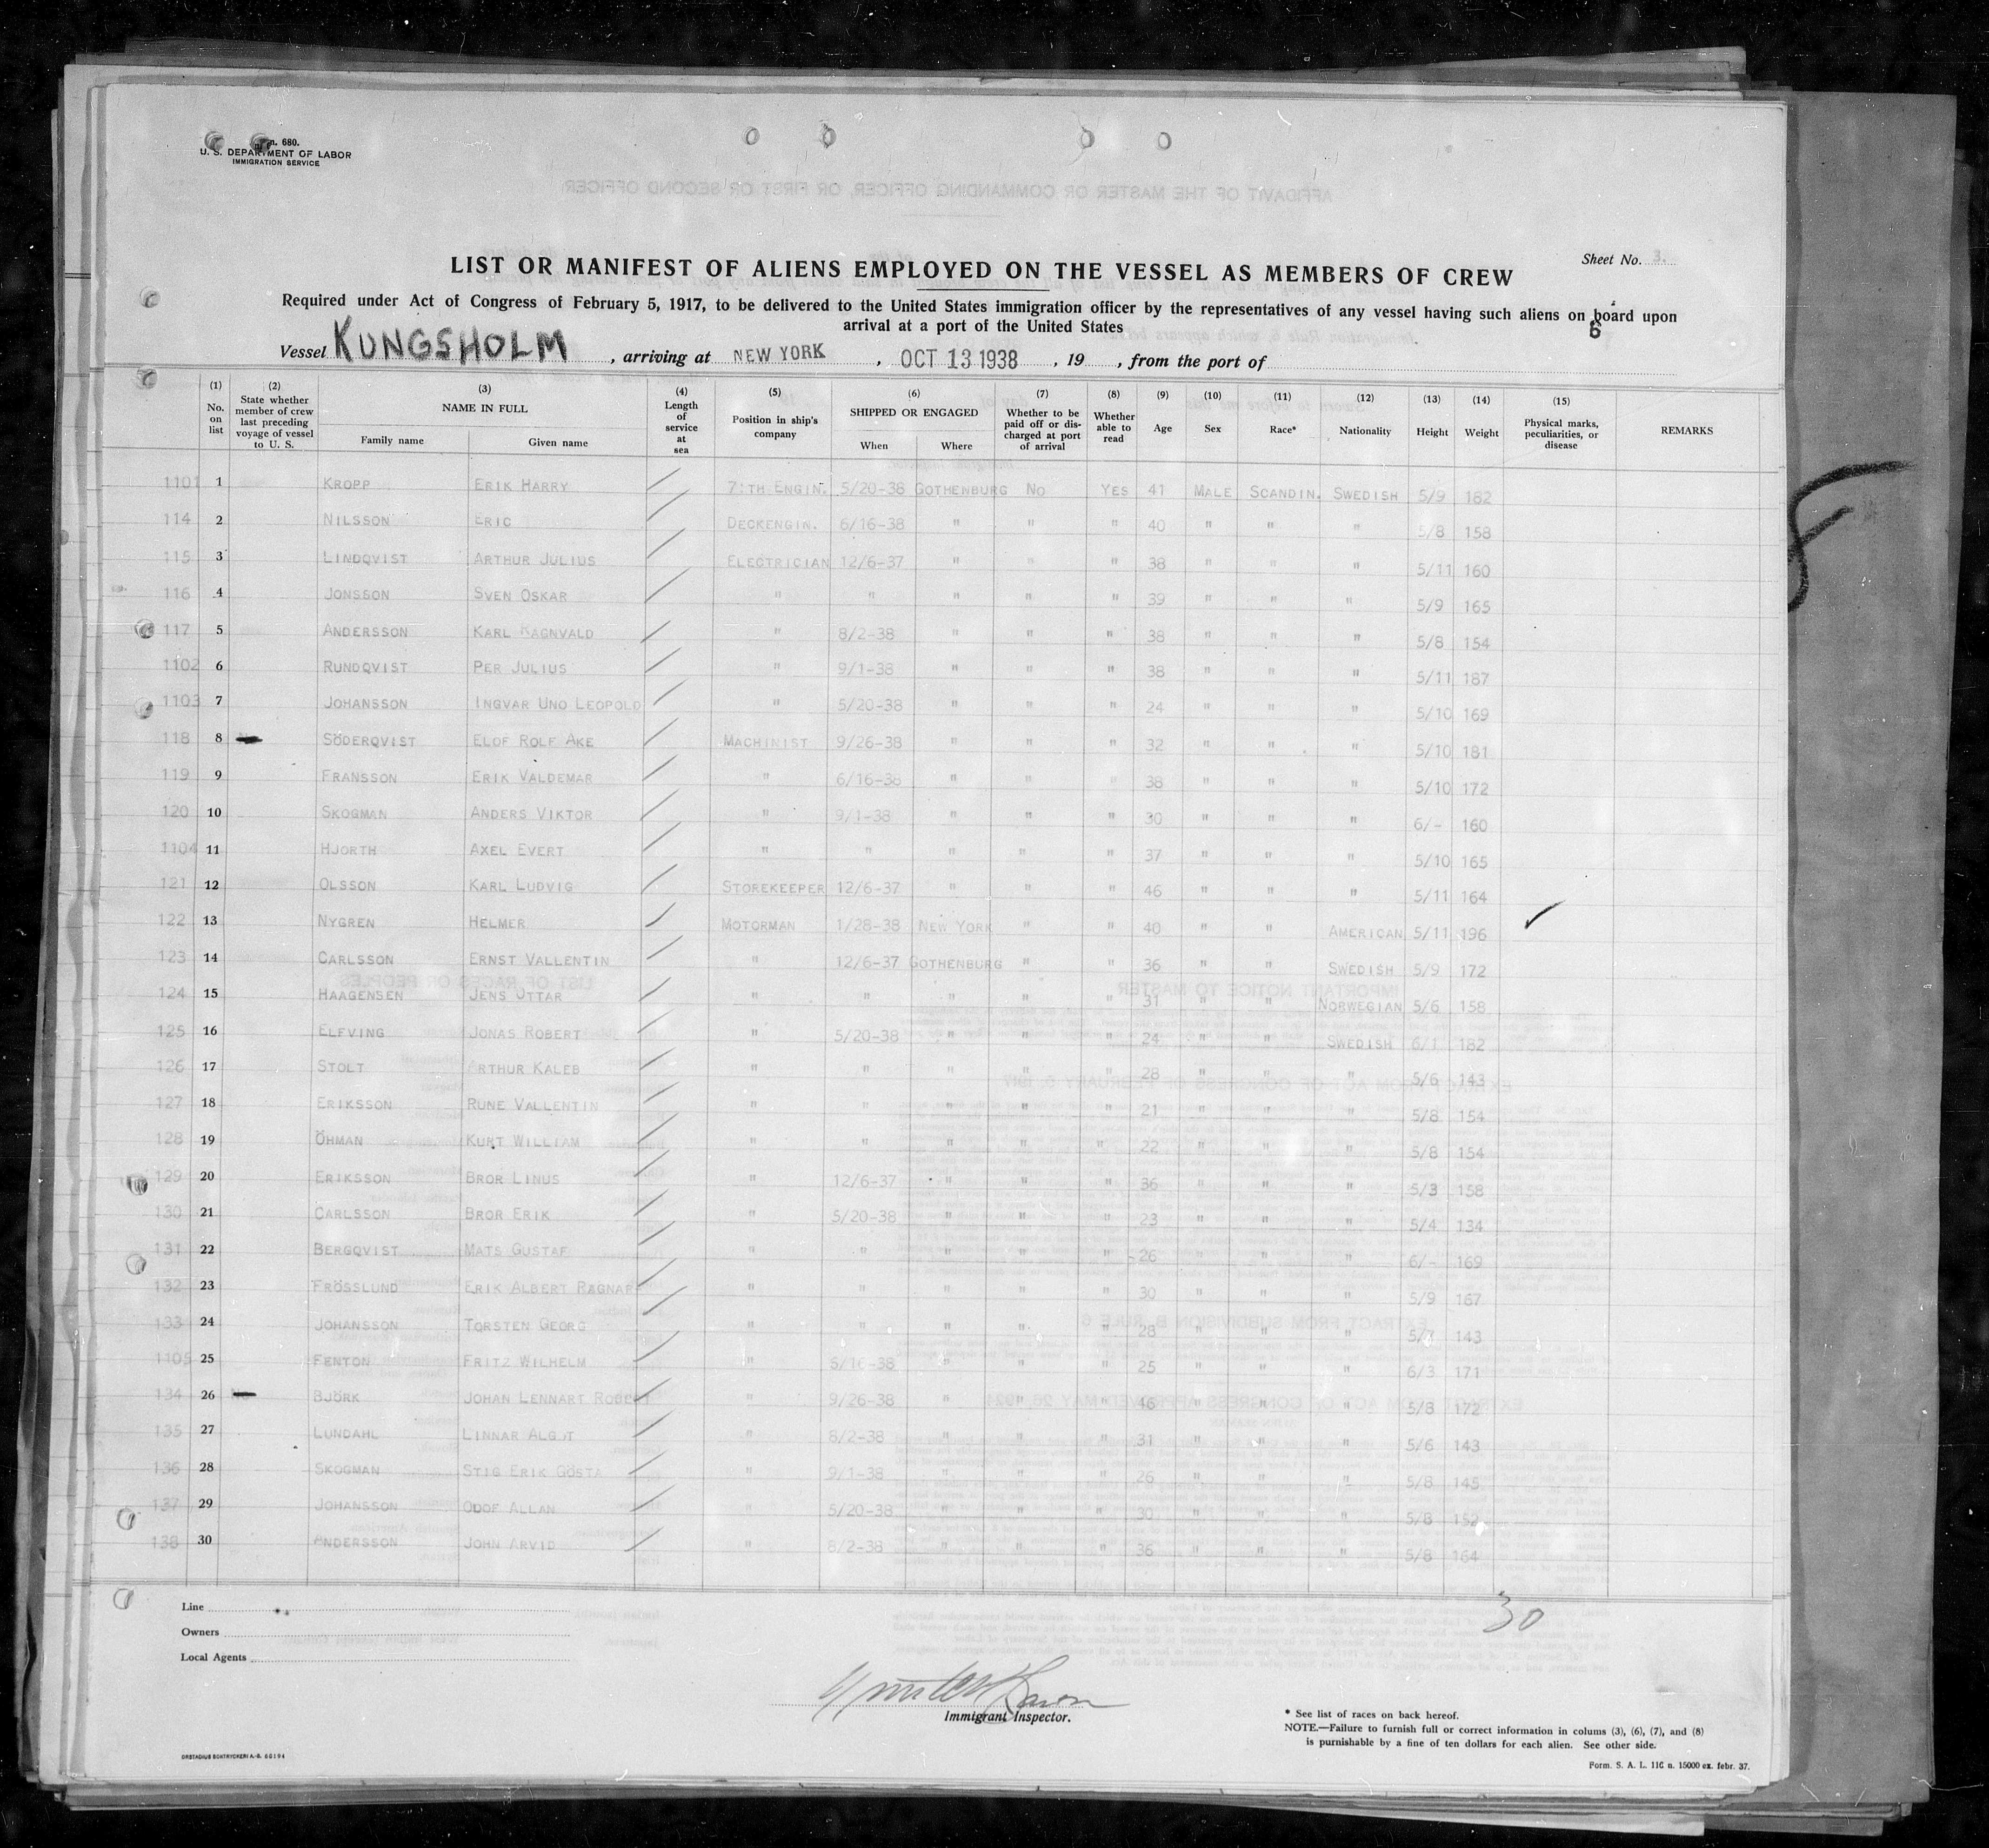 n. 680.
U. S. DEPARTMENT OF LABOR
IMMIGRATION SERVICE
Sheet No. 3.
LIST OR MANIFEST OF ALIENS EMPLOYED ON THE VESSEL AS MEMBERS OF CREW
Required under Act of Congress of February 5, 1917, to be delivered to the United States immigration officer by the representatives of any vessel having such aliens on board upon
arrival at a port of the United States
6
Vessel KUNGSHOLM, arriving at NEW YORK, OCT 13 1938, 19 , from the port of
(1) No. on list (2) State whether member of crew last preceding voyage of vessel to U. S. (3) NAME IN FULL Family name Given name (4) Length of service at sea (5) Position in ship's company (6) SHIPPED OR ENGAGED When Where (7) Whether to be paid off or discharged at port of arrival (8) Whether able to read (9) Age (10) Sex (11) Race* (12) Nationality (13) Height (14) Weight (15) Physical marks, peculiarities, or disease REMARKS
1101 1 KROPP ERIK HARRY 7:TH ENGIN. 5/20-38 GOTHENBURG NO YES 41 MALE SCANDIN. SWEDISH 5/9 182
114 2 NILSSON ERIC DECKENGIN. 6/16-38 " " " 40 " " " 5/8 158
115 3 LINDQVIST ARTHUR JULIUS ELECTRICIAN 12/6-37 " " " 38 " " " 5/11 160
116 4 JONSSON SVEN OSKAR " " " " " 39 " " " 5/9 165
117 5 ANDERSSON KARL RAGNVALD " 8/2-38 " " " 38 " " " 5/8 154
1102 6 RUNDQVIST PER JULIUS " 9/1-38 " " " 38 " " " 5/11 187
1103 7 JOHANSSON INGVAR UNO LEOPOLD " 5/20-38 " " " 24 " " " 5/10 169
118 8 SÖDERQVIST ELOF ROLF AKE MACHINIST 9/26-38 " " " 32 " " " 5/10 181
119 9 FRANSSON ERIK VALDEMAR " 6/16-38 " " " 38 " " " 5/10 172
120 10 SKOGMAN ANDERS VIKTOR " 9/1-38 " " " 30 " " " 6/- 160
1104 11 HJORTH AXEL EVERT " " " " " 37 " " " 5/10 165
121 12 OLSSON KARL LUDVIG STOREKEEPER 12/6-37 " " " 46 " " " 5/11 164
122 13 NYGREN HELMER MOTORMAN 1/28-38 NEW YORK " " 40 " " AMERICAN 5/11 196 ✓
123 14 CARLSSON ERNST VALLENTIN " 12/6-37 GOTHENBURG " " 36 " " SWEDISH 5/9 172
124 15 HAAGENSEN JENS OTTAR " " " " " 31 " " NORWEGIAN 5/6 158
125 16 ELFVING JONAS ROBERT " 5/20-38 " " " 24 " " SWEDISH 6/1 182
126 17 STOLT ARTHUR KALEB " " " " " 28 " " " 5/6 143
127 18 ERIKSSON RUNE VALLENTIN " " " " " 21 " " " 5/8 154
128 19 ÖHMAN KURT WILLIAM " " " " " 22 " " " 5/8 154
129 20 ERIKSSON BROR LINUS " 12/6-37 " " " 36 " " " 5/3 158
130 21 CARLSSON BROR ERIK " 5/20-38 " " " 23 " " " 5/4 134
131 22 BERGQVIST MATS GUSTAF " " " " " 26 " " " 6/- 169
132 23 FRÖSSLUND ERIK ALBERT RAGNAR " " " " " 30 " " " 5/9 167
133 24 JOHANSSON TORSTEN GEORG " " " " " 28 " " " 143
1105 25 FENTON FRITZ WILHELM " " " " 25 " " " 6/3 171
134 26 BJÖRK JOHAN LENNART ROBERT " 9/26-38 " " " 46 " " " 5/8 172
135 27 LUNDAHL LINNAR ALGOT " 8/2-38 " " " 31 " " " 5/6 143
136 28 SKOGMAN STIG ERIK GÖSTA " 9/1-38 " " " 26 " " " 5/8 145
137 29 JOHANSSON ODOF ALLAN " 5/20-38 " " " 30 " " " 5/8 152
138 30 ANDERSSON JOHN ARVID " 8/2-38 " " " 36 " " " 5/8 164
30
Line
Owners
Local Agents
Immigrant Inspector.
* See list of races on back hereof.
NOTE.—Failure to furnish full or correct information in colums (3), (6), (7), and (8)
is punishable by a fine of ten dollars for each alien. See other side.
ORSTADIUS BOKTRYCKERI A.-B. 66194
Form. S. A. L. 11C n. 15000 ex. febr. 37.